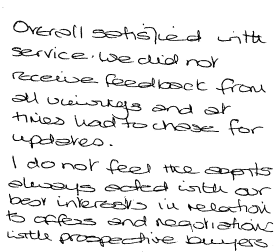 Overall satisfied with
service. We did not
receive feedback from
all viewings and at
times had to chase for
updates.
I do not feel the agents
always acted with our
best interests in relation
to offers and negotiations
with prospective buyers